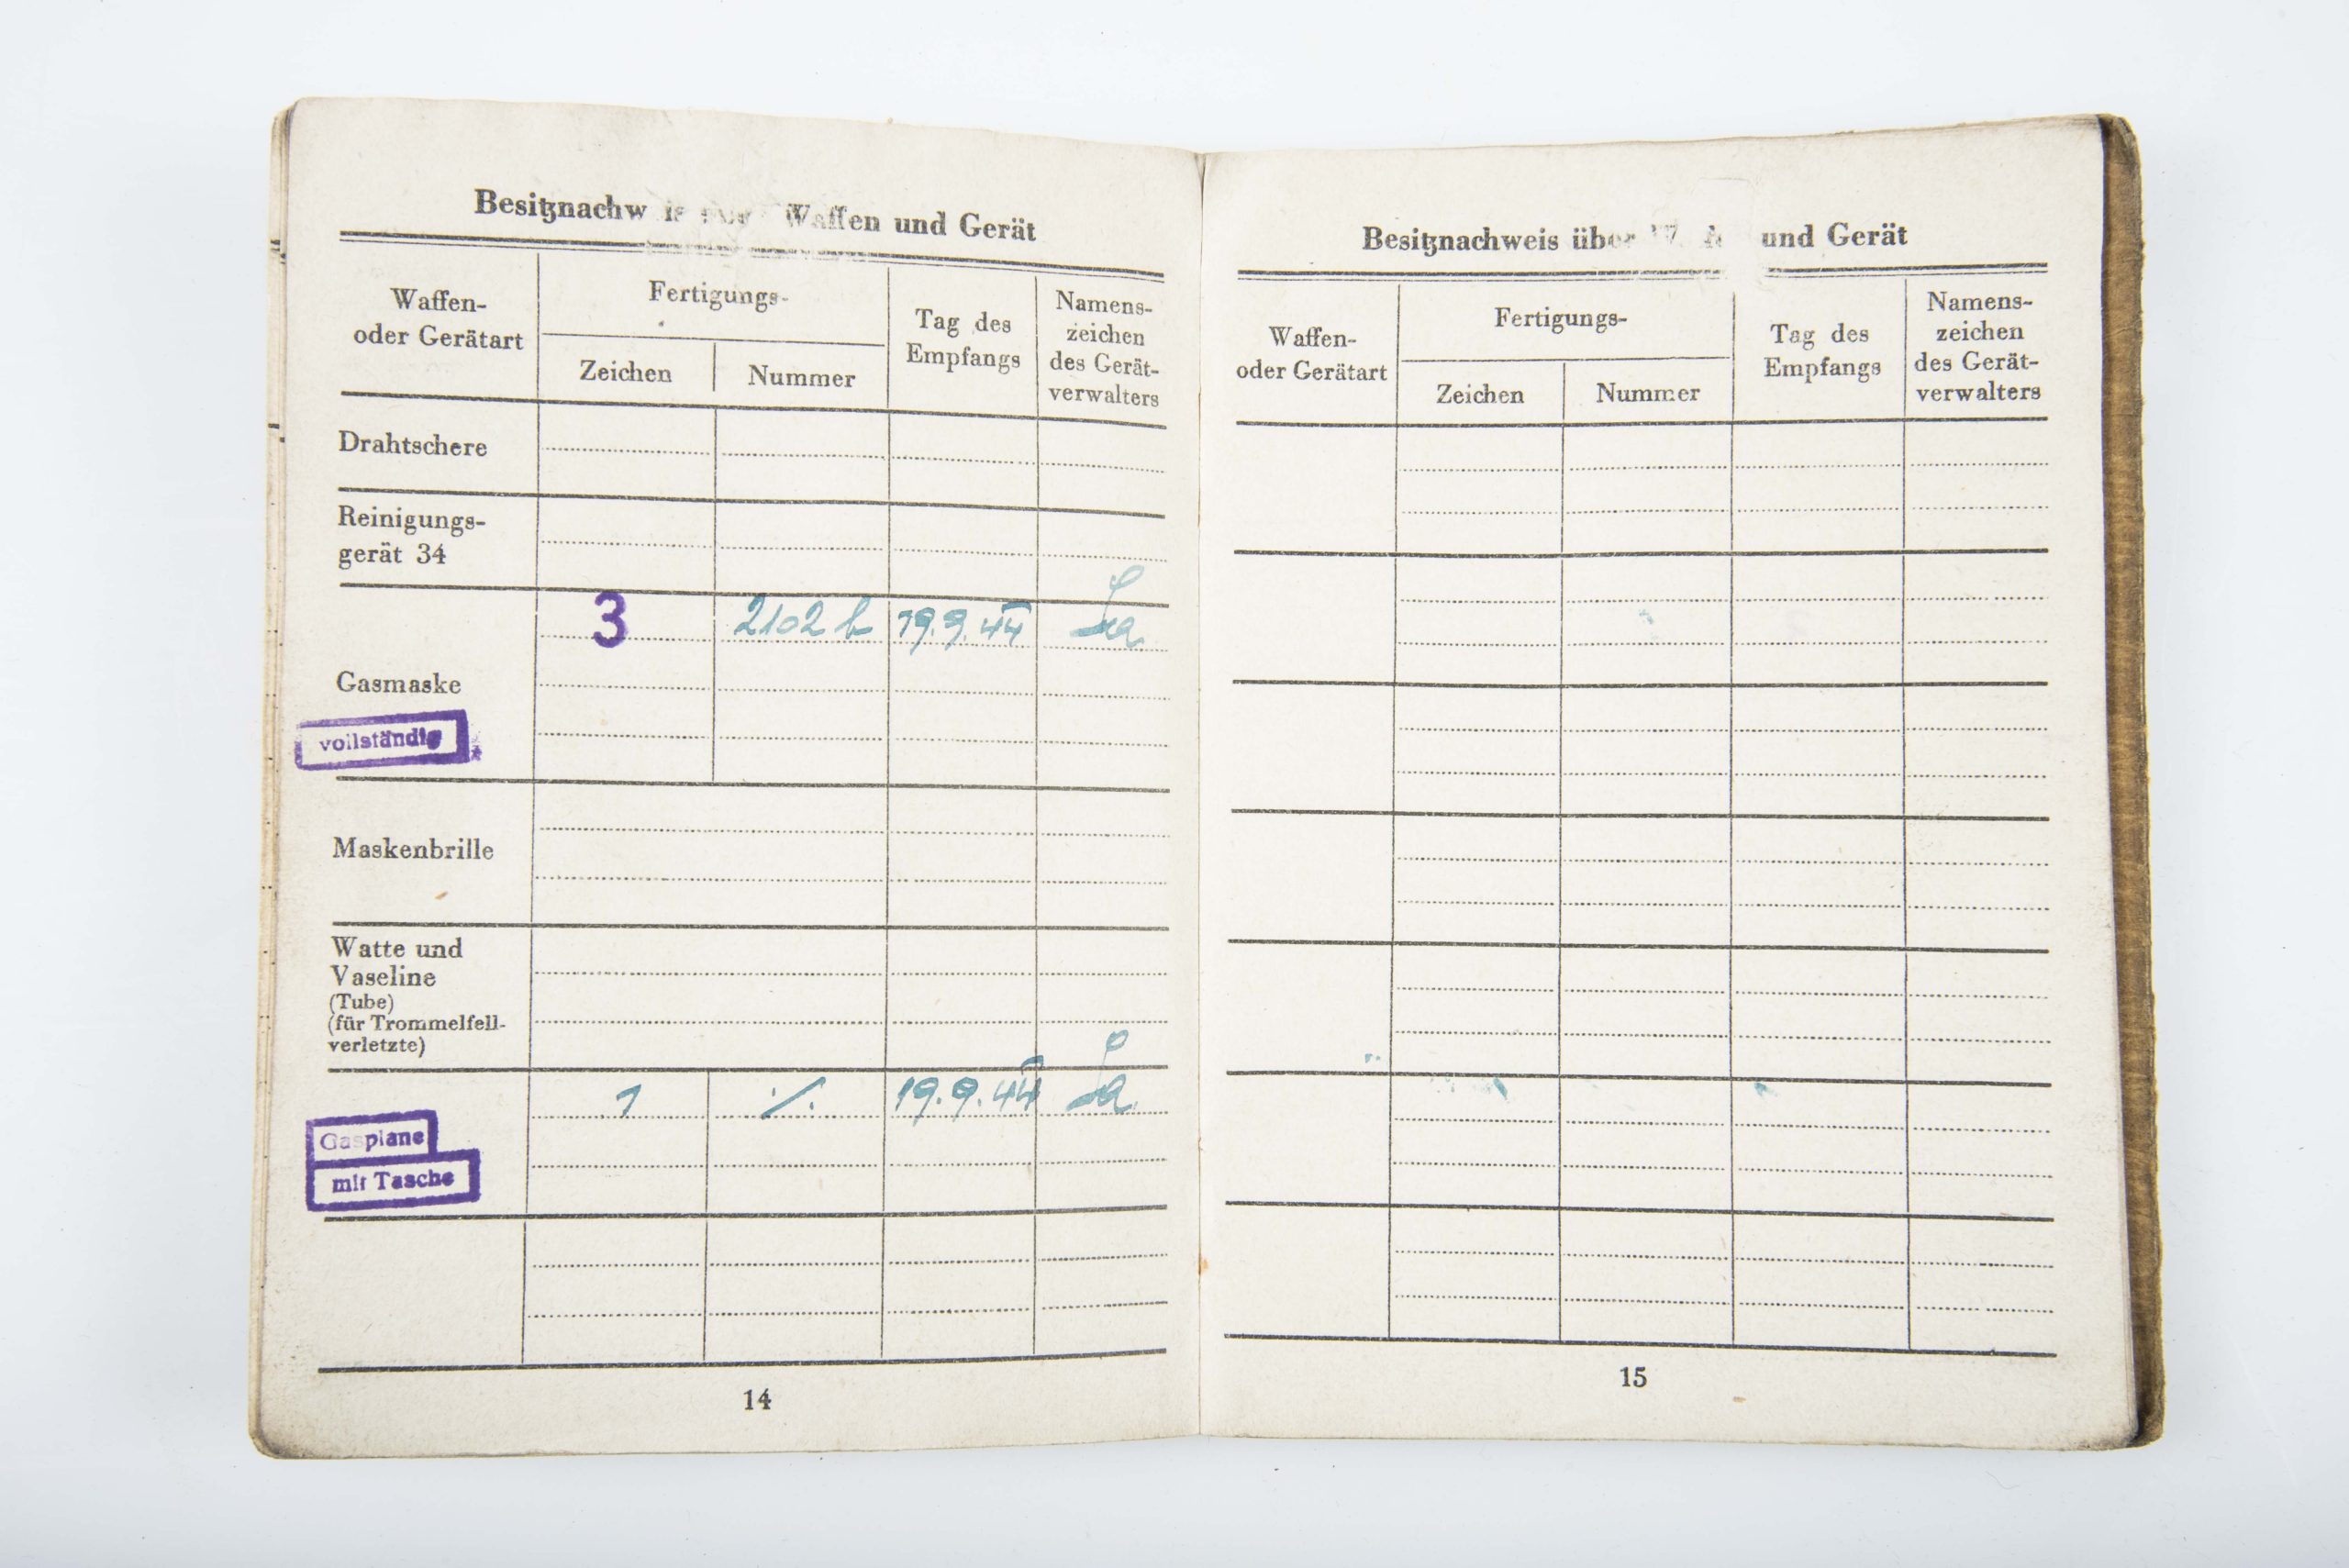 Besitznachw is Waffen und Gerät
Waffen-
oder Gerätart
Fertigungs-
Zeichen
Nummer
Tag des
Empfangs
Namens-
zeichen
des Gerät-
verwalters
Drahtschere
Reinigungs-
gerät 34
3 2102 b 19.9.44
Gasmaske
vollständig
Maskenbrille
Watte und
Vaseline
(Tube)
(für Trommelfell-
verletzte)
1 ./. 19.9.44
Gasplane
mit Tasche
14
Besitznachweis über und Gerät
Waffen-
oder Gerätart
Fertigungs-
Zeichen
Nummer
Tag des
Empfangs
Namens-
zeichen
des Gerät-
verwalters
15